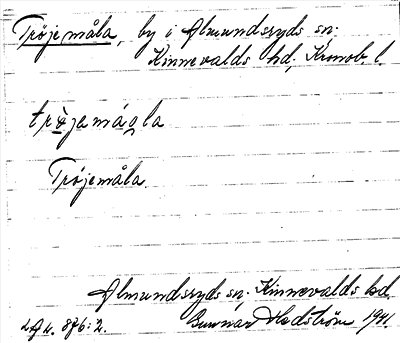 Tröjemåla, by i Almundsryds sn.
Kinnevalds hd, Kronob. l.
tröjamåla
Tröjemåla.
Almundsryds sn, Kinnevalds hd.
Gunnar Hedström 1941.
876:2.